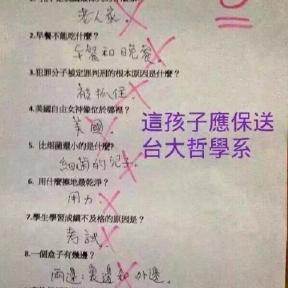 老人家.
2.早餐不能吃什麼?
午餐和晚餐.
3.犯罪分子被定罪判刑的根本原因是什麼?
被抓住.
4.美國自由女神像位於哪裡?
美國.
這孩子應保送
台大哲學系
5. 比細菌還小的是什麼?
細菌的兒子.
6. 用什麼擦地最乾淨?
用力.
7.學生學習成績不及格的原因是?
考試.
8.一個盒子有幾邊?
兩邊:裏邊和外邊.